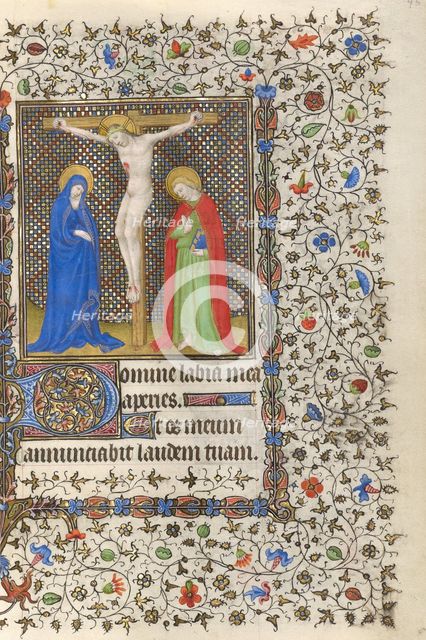 Heritage Heritage
Heritage Heritage
Domine labia mea
aperies.
Et os meum
annunciabit laudem tuam.